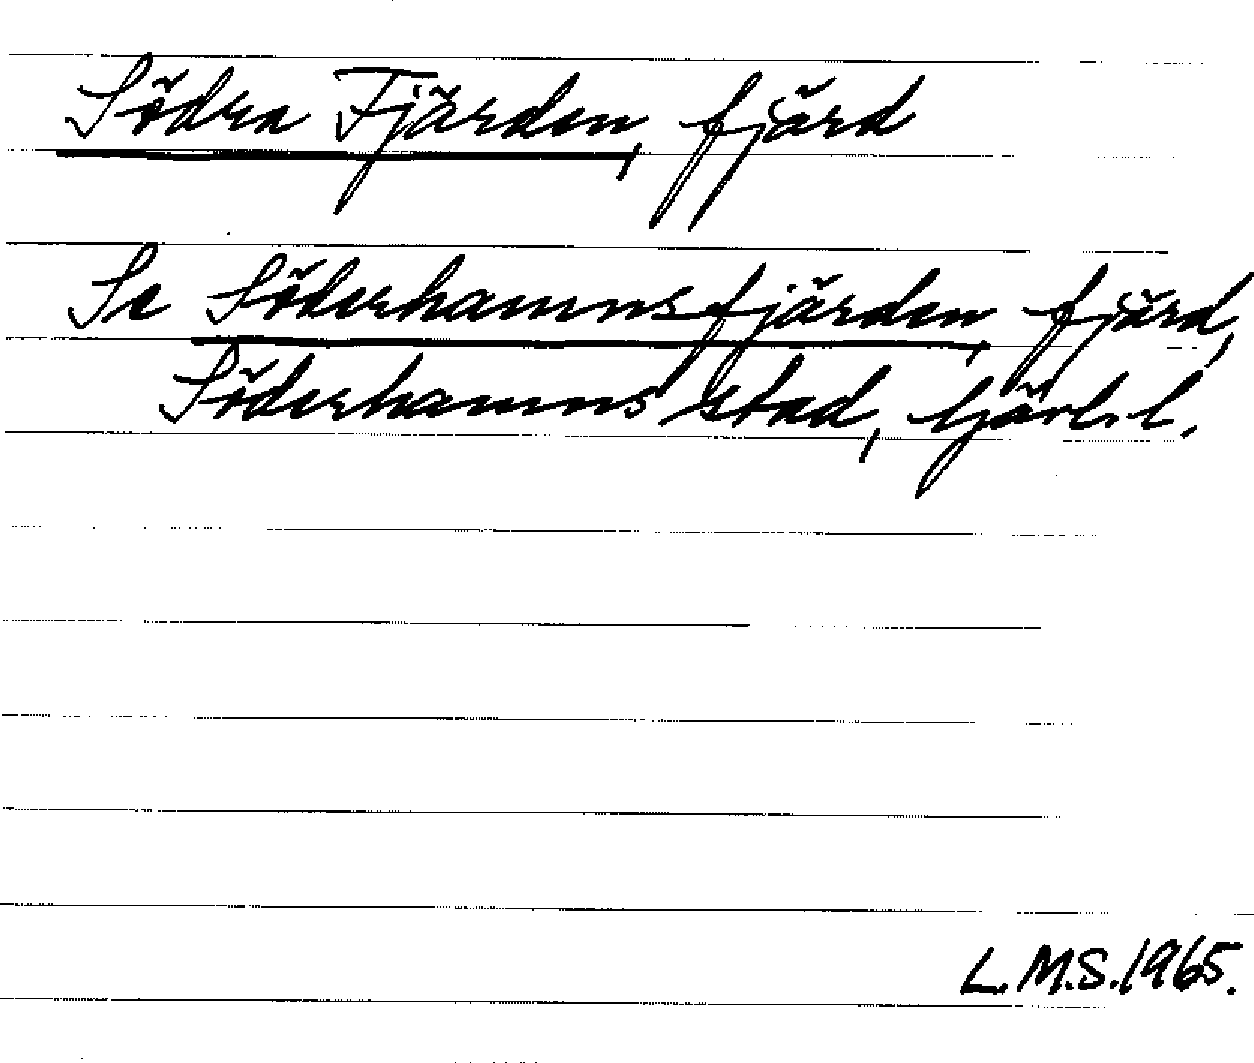 Södra Fjärden, fjärd
Se Söderhamnsfjärden, fjärd,
Söderhamns stad, Gävl. l.
L.M.S. 1965.